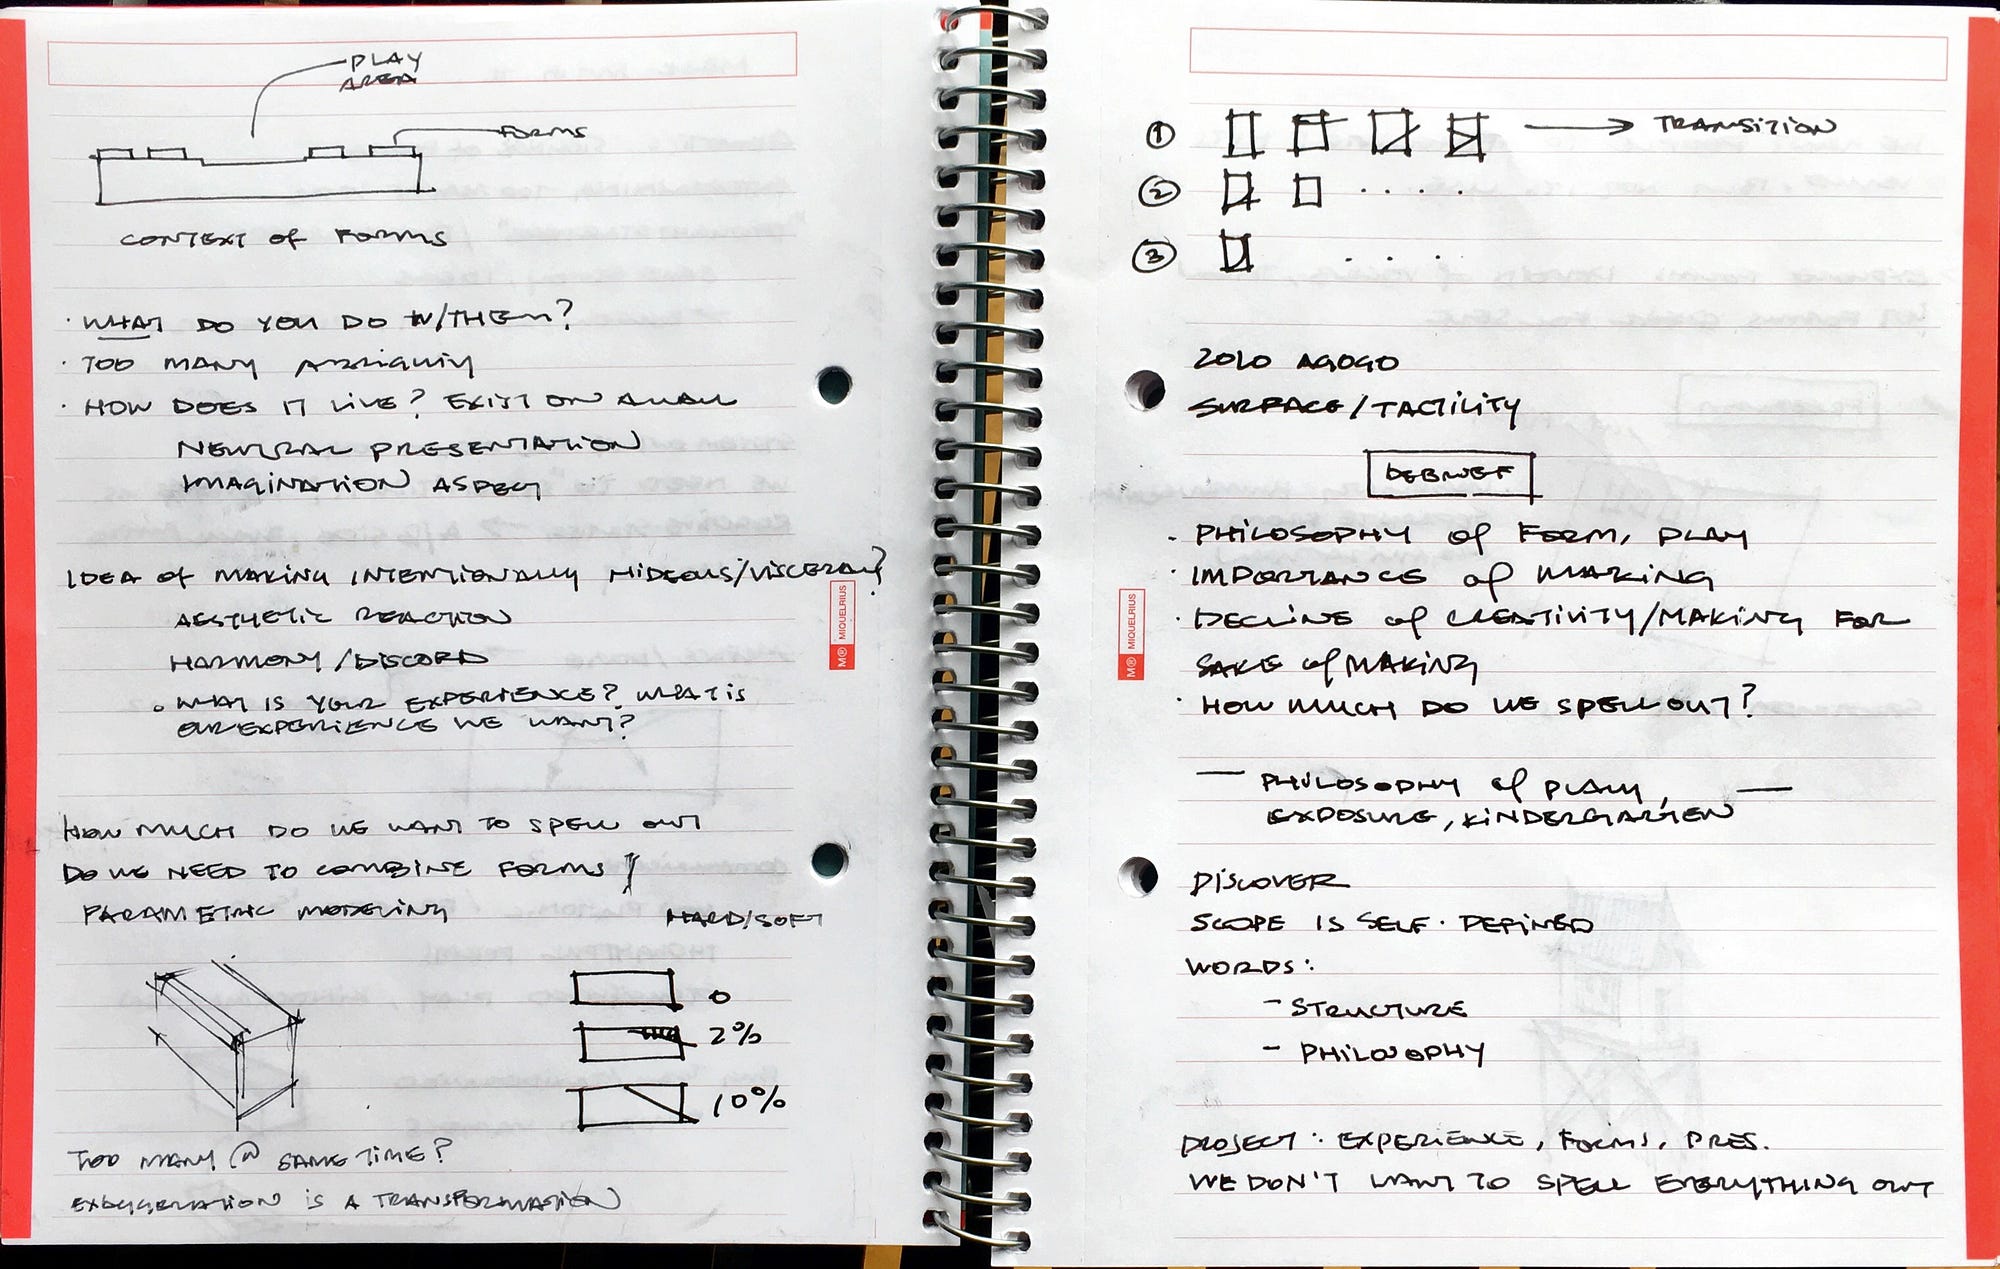 PLAY
AREA
FORMS
CONTEXT of FORMS
· WHAT DO YOU DO W/THEM?
· TOO MANY AMBIGUITY
· HOW DOES IT LIVE? EXIST ON A WALL
NEUTRAL PRESENTATION
IMAGINATION ASPECT
IDEA of MAKING INTENTIONALLY HIDEOUS/VISCERAL?
AESTHETIC REACTION
HARMONY/DISCORD
∘ WHAT IS YOUR EXPERIENCE? WHAT IS
OUR EXPERIENCE WE WANT?
HOW MUCH DO WE WANT TO SPELL OUT
DO WE NEED TO COMBINE FORMS?
PARAMETRIC MODELING
HARD/SOFT
0
2%
10%
TOO MANY @ SAME TIME?
EXAGGERATION IS A TRANSFORMATION
M® MIQUELRIUS
① → TRANSITION
② · · · · ·
③ · · · ·
ZOLO AGOGO
SURFACE/TACTILITY
DEBRIEF
· PHILOSOPHY of FORM, PLAY
· IMPORTANCE of MAKING
· DECLINE of CREATIVITY/MAKING FOR
SAKE of MAKING
· HOW MUCH DO WE SPELL OUT?
— PHILOSOPHY of PLAY, —
EXPOSURE, KINDERGARTEN
DISCOVER
SCOPE IS SELF-DEFINED
WORDS:
- STRUCTURE
- PHILOSOPHY
PROJECT: EXPERIENCE, FORMS, PRES.
WE DON'T WANT TO SPELL EVERYTHING OUT
M® MIQUELRIUS